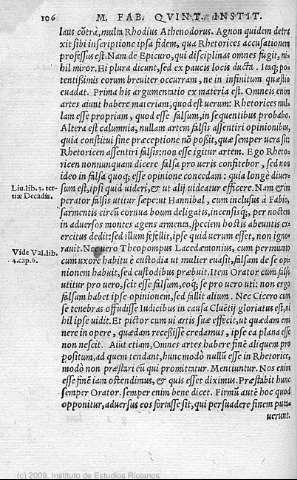 106 M. FAB. QVINT. INSTIT.
laus cōtrà, multa Rhodius Athenodorus. Agnon quidem detra
xit sibi inscriptione ipsa fidem, qua Rhetorices accusationem
professus est. Nam de Epicuro, qui disciplinas omnes fugit, ni-
hil miror. Et plura dicunt, sed ex paucis locis ducta. Itaq; po-
tentissimis eorum breuiter occurram, ne in infinitum quæstio
euadat. Prima his argumentatio ex materia est. Omneis enim
artes aiunt habere materiam, quod est uerum: Rhetorices nul-
lam esse propriam, quod esse falsum, in sequentibus probabo.
Altera est calumnia, nullam artem falsis assentiri opinionibus,
quia constitui sine præceptione nō possit, quæ semper uera sit:
Rhetoricen assentiri falsis: non esse igitur artem. Ego Rheto-
ricen nonnunquam dicere falsa pro ueris confitebor, sed non
ideo in falsa quoq; esse opinione concedam: quia longè diuer-
Liu. lib. 2. ter- sum est, ipsi quid uideri, & ut alij uideatur efficere. Nam & im
tiæ Decadis. perator falsis utitur sæpe: ut Hannibal, cum inclusus à Fabio,
sarmentis circū cornua boum deligatis, incensisq;, per noctem
in aduersos montes agens armenta, speciem hostis abeuntis ex-
ercitus dedit: sed illum fefellit, ipse quid uerum esset, non igno-
Vide Val. lib. rauit. Nec uero Theopompus Lacedæmonius, cum permutato
4. cap. 6. cum uxore habitu è custodia ut mulier euasit, falsam de se opi-
nionem habuit, sed custodibus præbuit. Item Orator cum falso
utitur pro uero, scit esse falsum, eoq; se pro uero uti: non ergo
falsam habet ipse opinionem, sed fallit alium. Nec Cicero cum
se tenebras offudisse Iudicibus in causa Cluētij gloriatus est, ni-
hil ipse uidit. Et pictor cum ui artis suæ efficit, ut quædam emi
nere in opere, quædam recessisse credamus, ipse ea plana esse
non nescit. Aiut etiam, Omnes artes habere finē aliquem pro
positum, ad quem tendant, hunc modò nullū esse in Rhetorice,
modò non præstari eū qui promittatur. Mentiuntur. Nos enim
esse finē iam ostendimus, & quis esset diximus. Præstabit hunc
semper Orator. semper enim bene dicet. Firmū autē hoc quod
opponitur, aduersus eos fortasse sit, qui persuadere finem puta-
uerunt.
(c) 2009, Instituto de Estudios Riojanos